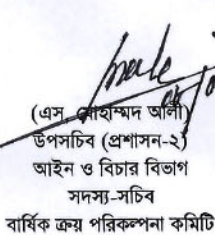 (এস, মোহাম্মদ আলী)
উপসচিব (প্রশাসন-২)
আইন ও বিচার বিভাগ
সদস্য-সচিব
বার্ষিক ক্রয় পরিকল্পনা কমিটি